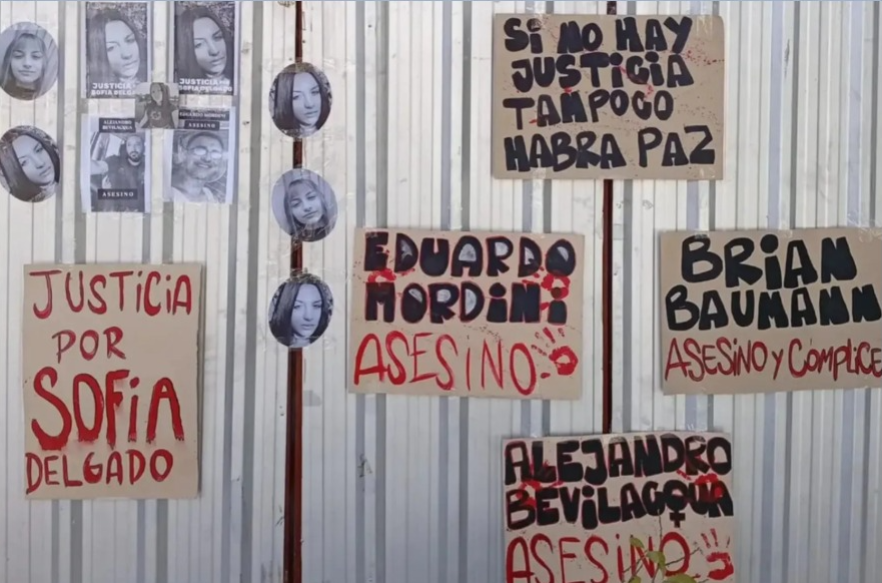 JUSTICIA POR
SOFIA DELGADO
JUSTICIA POR
SOFIA DELGADO
ALEJANDRO
BEVILACQUA
ASESINO
EDUARDO MORDINI
ASESINO
SI NO HAY
JUSTICIA
TAMPOCO
HABRA PAZ
JUSTICIA
POR
SOFIA
DELGADO
EDUARDO
MORDINI
ASESINO
BRIAN
BAUMANN
ASESINO Y COMPLICE
ALEJANDRO
BEVILACQUA
ASESINO